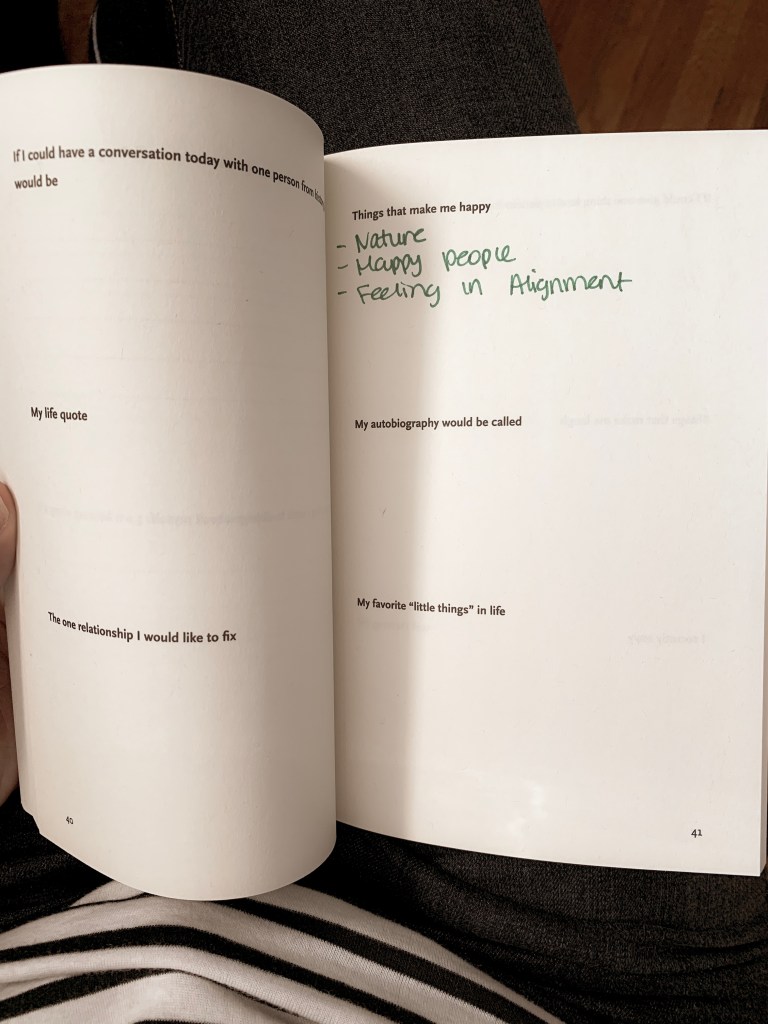 If I could have a conversation today with one person from history
would be
My life quote
The one relationship I would like to fix
40
Things that make me happy
- Nature
- Happy people
- Feeling in Alignment
My autobiography would be called
My favorite “little things” in life
41